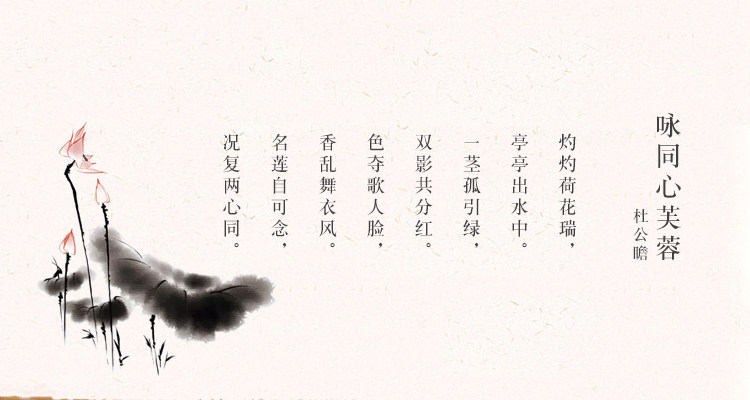 咏同心芙蓉
杜公瞻
灼灼荷花瑞，
亭亭出水中。
一茎孤引绿，
双影共分红。
色夺歌人脸，
香乱舞衣风。
名莲自可念，
况复两心同。